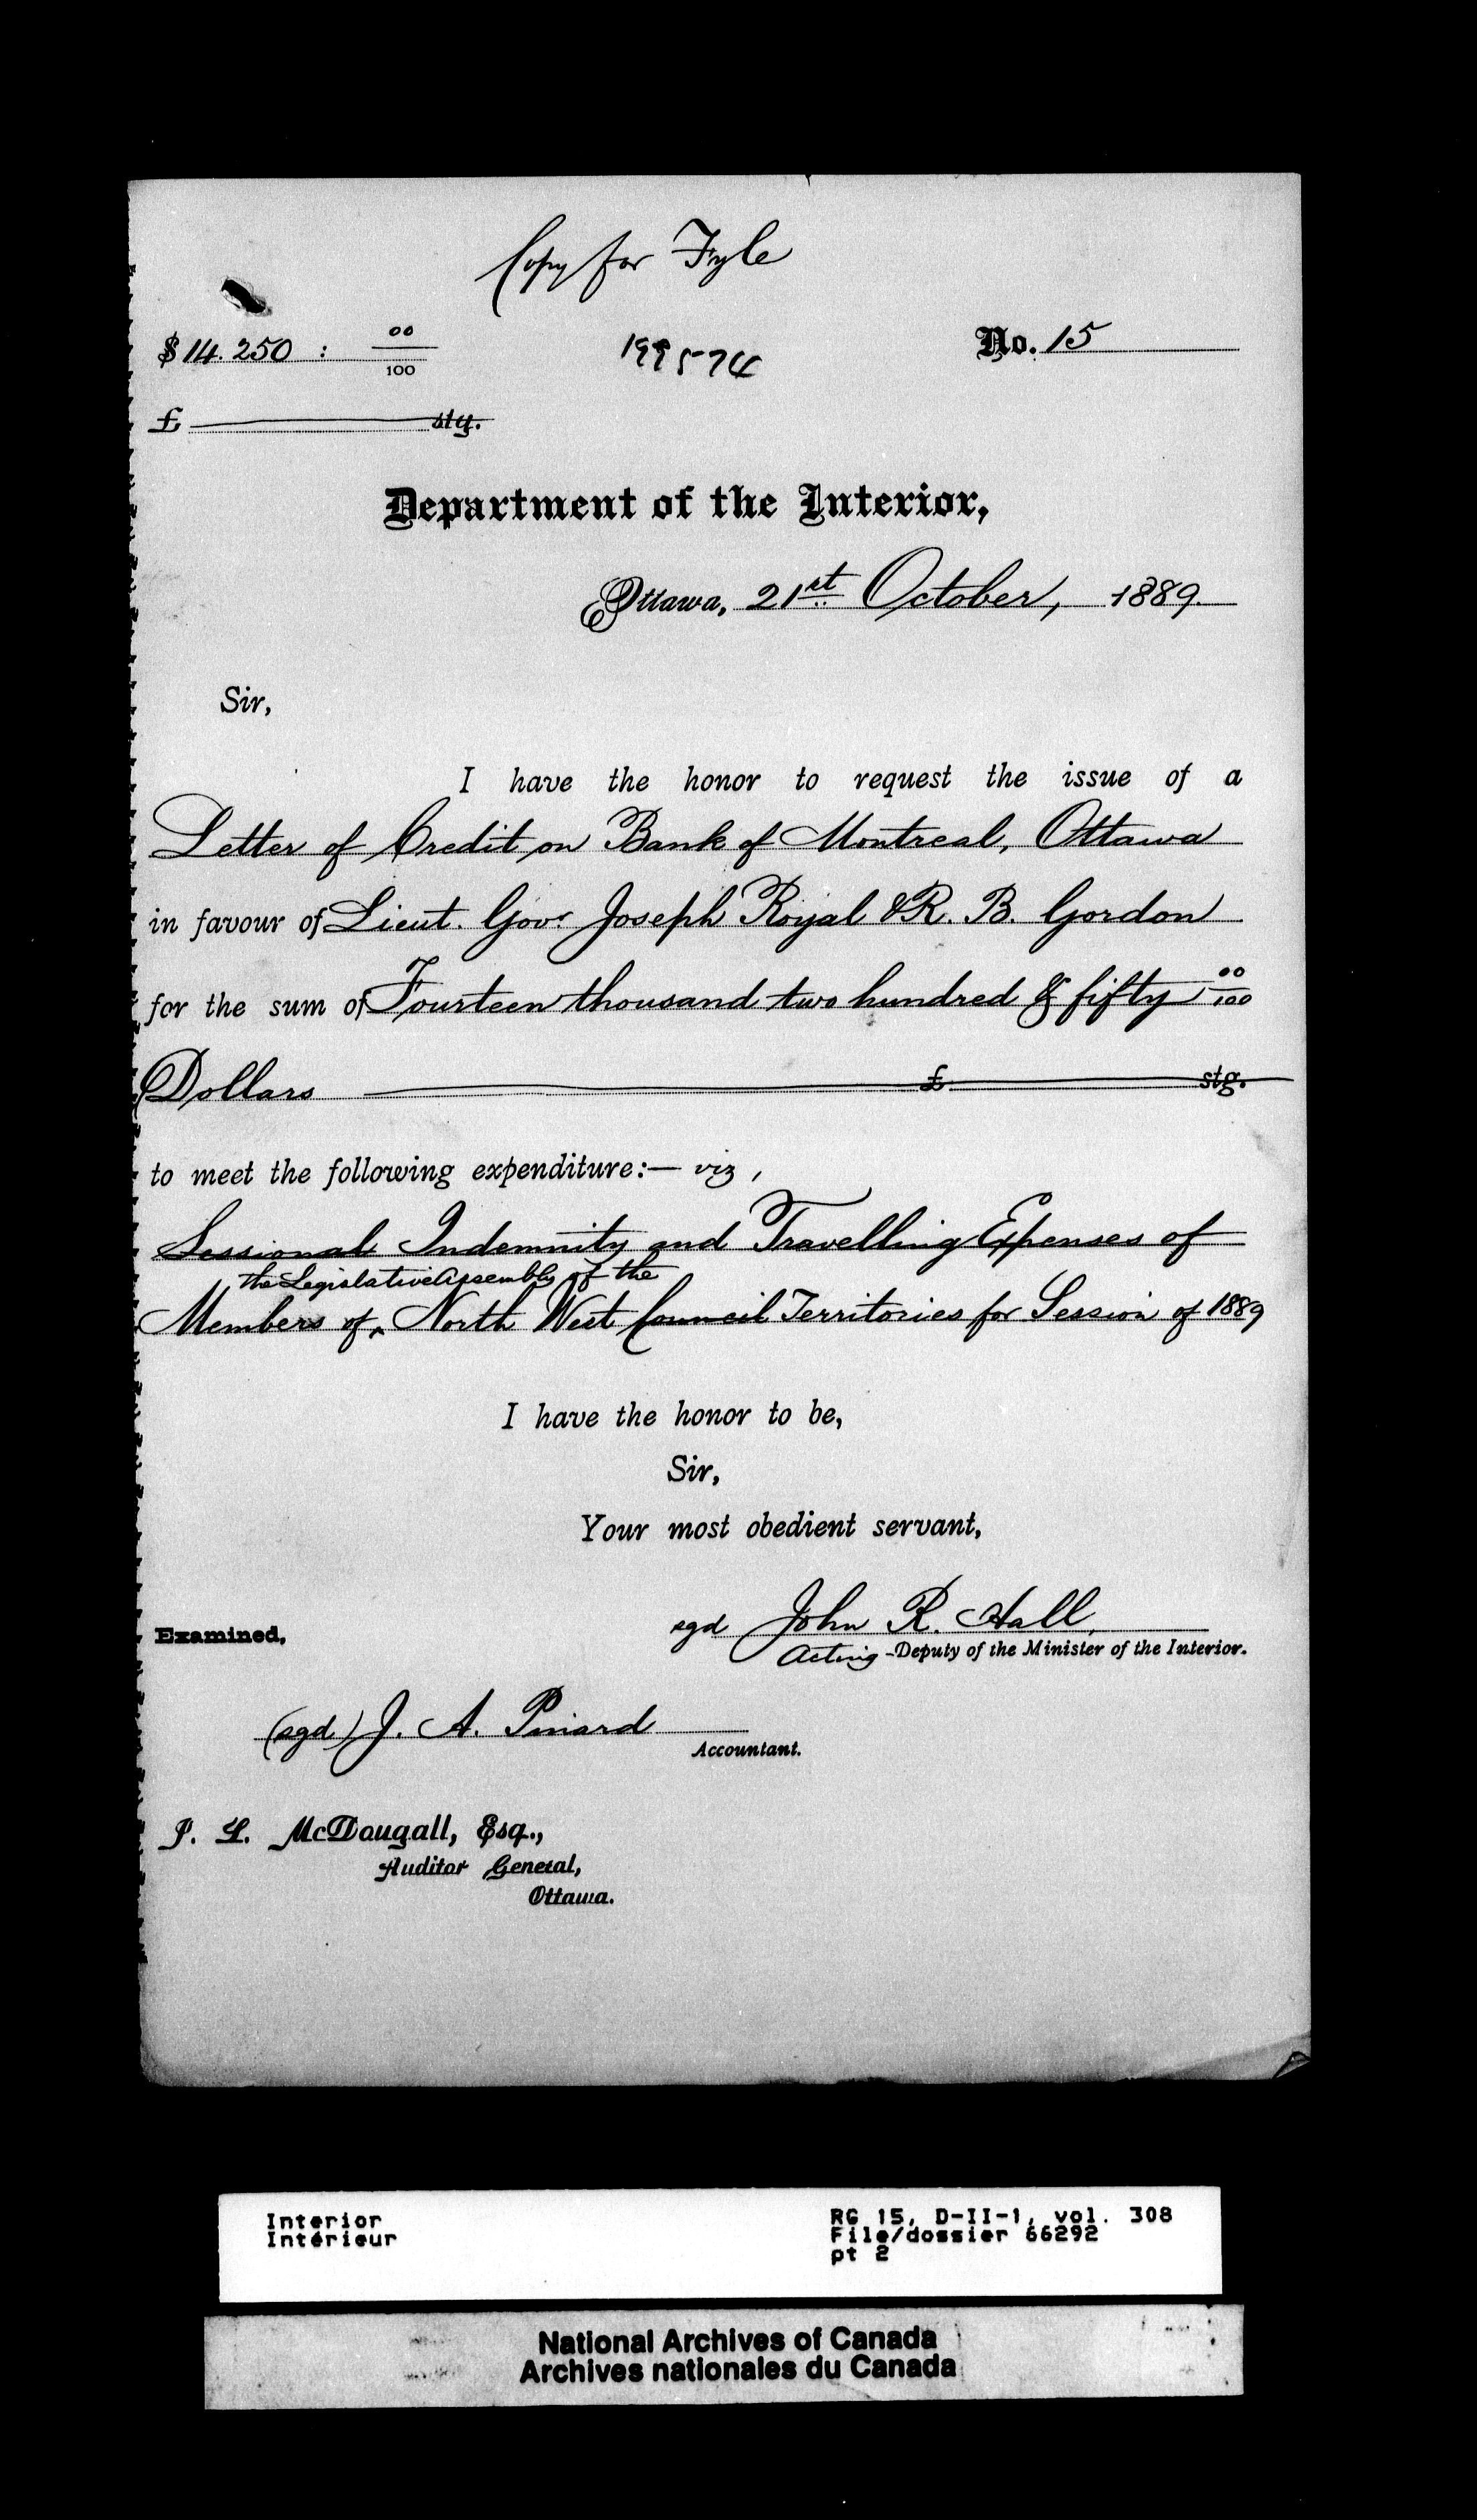 Copy for Fyle
$ 14.250 : 00/100 199574 No. 15
£ stg.
Department of the Interior,
Ottawa, 21st October, 1889.
Sir,
I have the honor to request the issue of a
Letter of Credit on Bank of Montreal, Ottawa
in favour of Lieut. Govr Joseph Royal & R. B. Gordon
for the sum of Fourteen thousand two hundred & fifty 00/100
Dollars £ stg.
to meet the following expenditure:— viz,
Sessional Indemnity and Travelling Expenses of
the Legislative Assembly of the
Members of ^ North West Council Territories for Session of 1889
I have the honor to be,
Sir,
Your most obedient servant,
sgd John R. Hall,
Examined,
Acting - Deputy of the Minister of the Interior.
(sgd) J. A. Pinard
Accountant.
J. L. McDougall, Esq.,
Auditor General,
Ottawa.
Interior RG 15, D-II-1, vol. 308
Intérieur File/dossier 66292
pt 2
National Archives of Canada
Archives nationales du Canada